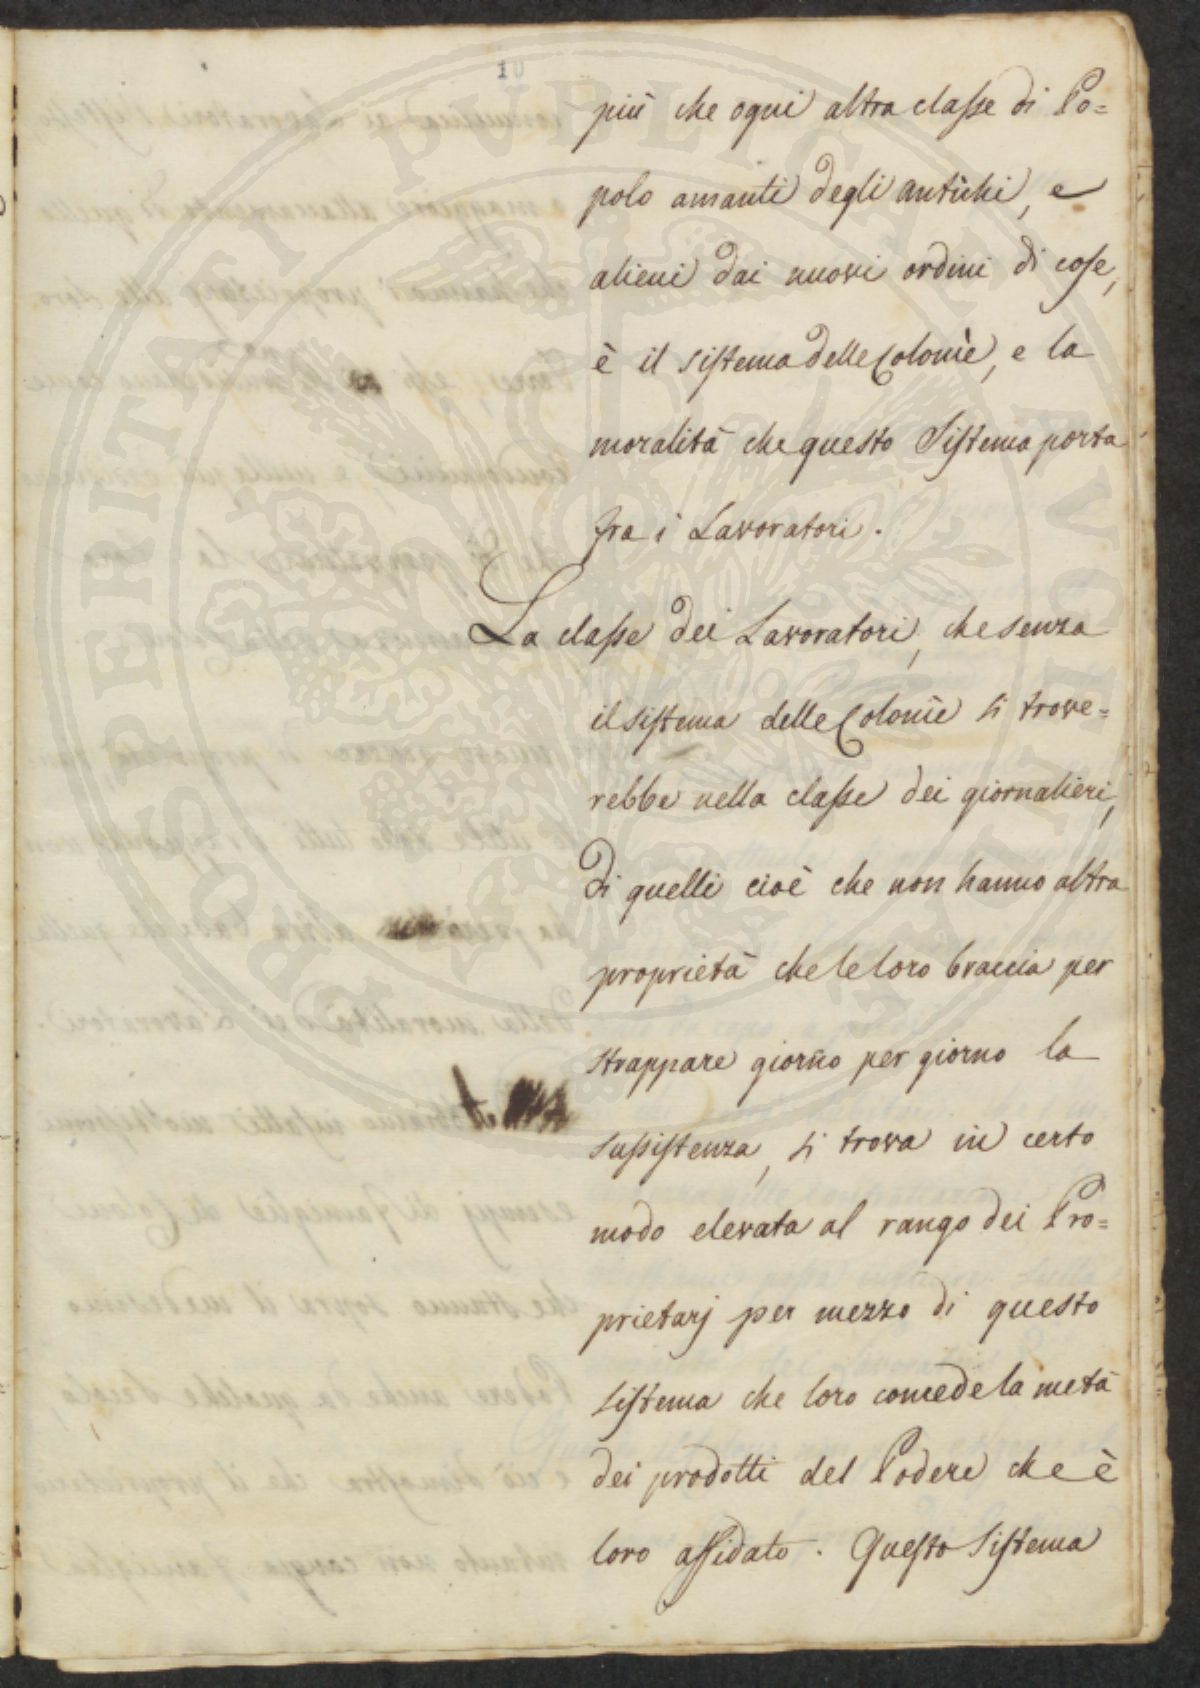 10
più che ogni altra classe di Po=
polo amanti degli antichi, e
alieni dai nuovi ordini di cose,
è il sistema delle Colonìe, e la
moralità che questo Sistema porta
fra i Lavoratori.
La classe dei Lavoratori, che senza
il sistema delle Colonìe si trove=
rebbe nella classe dei giornalieri,
di quelli cioè che non hanno altra
proprietà che le loro braccia per
strappare giorno per giorno la
sussistenza, si trova in certo
modo elevata al rango dei Pro=
prietarj per mezzo di questo
sistema che loro concede la metà
dei prodotti del Podere che è
loro affidato. Questo Sistema
PROSPERITATI PUBLICAE AVGENDAE